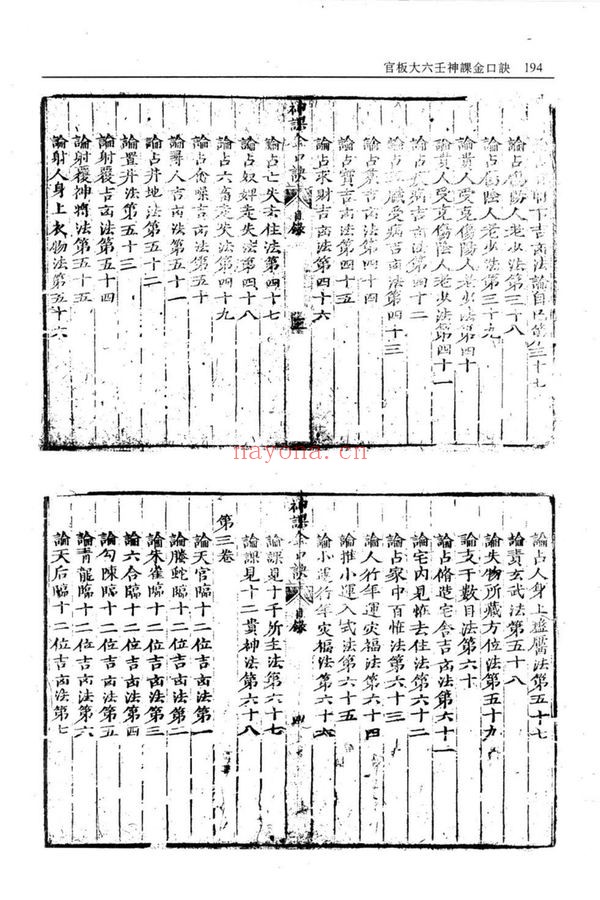 官板大六壬神課金口訣 194
時下吉凶法論自□第三十七
論占傷陰人老少法第三十八
論占傷陰人老少法第三十九
論貴人受克傷陰人老少法第四十
論貴人受克傷陰人老少法第四十一
論占疾病吉凶法第四十二
職受病吉凶法第四十三
論占墓吉凶法第四十四
論占宝吉凶法第四十五
論占求財吉凶法第四十六
神課金口訣 目錄
論占亡失去住法第四十七
論占奴婢走失法第四十八
論占六畜走失法第四十九
論占禽噪吉凶法第五十
論尋人吉凶法第五十一
論占井地法第五十二
論置井法第五十三
論射覆吉凶法第五十四
論射覆神將法第五十五
論射人身上衣物法第五十六
nayona.cn
論占人身上虛靨法第五十七
論責玄武法第五十八
論失物所藏方位法第五十九
論支干數目法第六十
論占脩造宅舍吉凶法第六十一
論宅內見恠去住法第六十二
論占家中百恠法第六十三
論人行年運災福法第六十四
論推小運入式法第六十五
論小運行年灾福法第六十六
神課金口訣 目錄
論課見十干所主法第六十七
論課見十二貴神法第六十八
第三卷
論天官臨十二位吉凶法第一
論騰蛇臨十二位吉凶法第二
論朱雀臨十二位吉凶法第三
論六合臨十二位吉凶法第四
論勾陳臨十二位吉凶法第五
論青龍臨十二位吉凶法第六
論天后臨十二位吉凶法第七